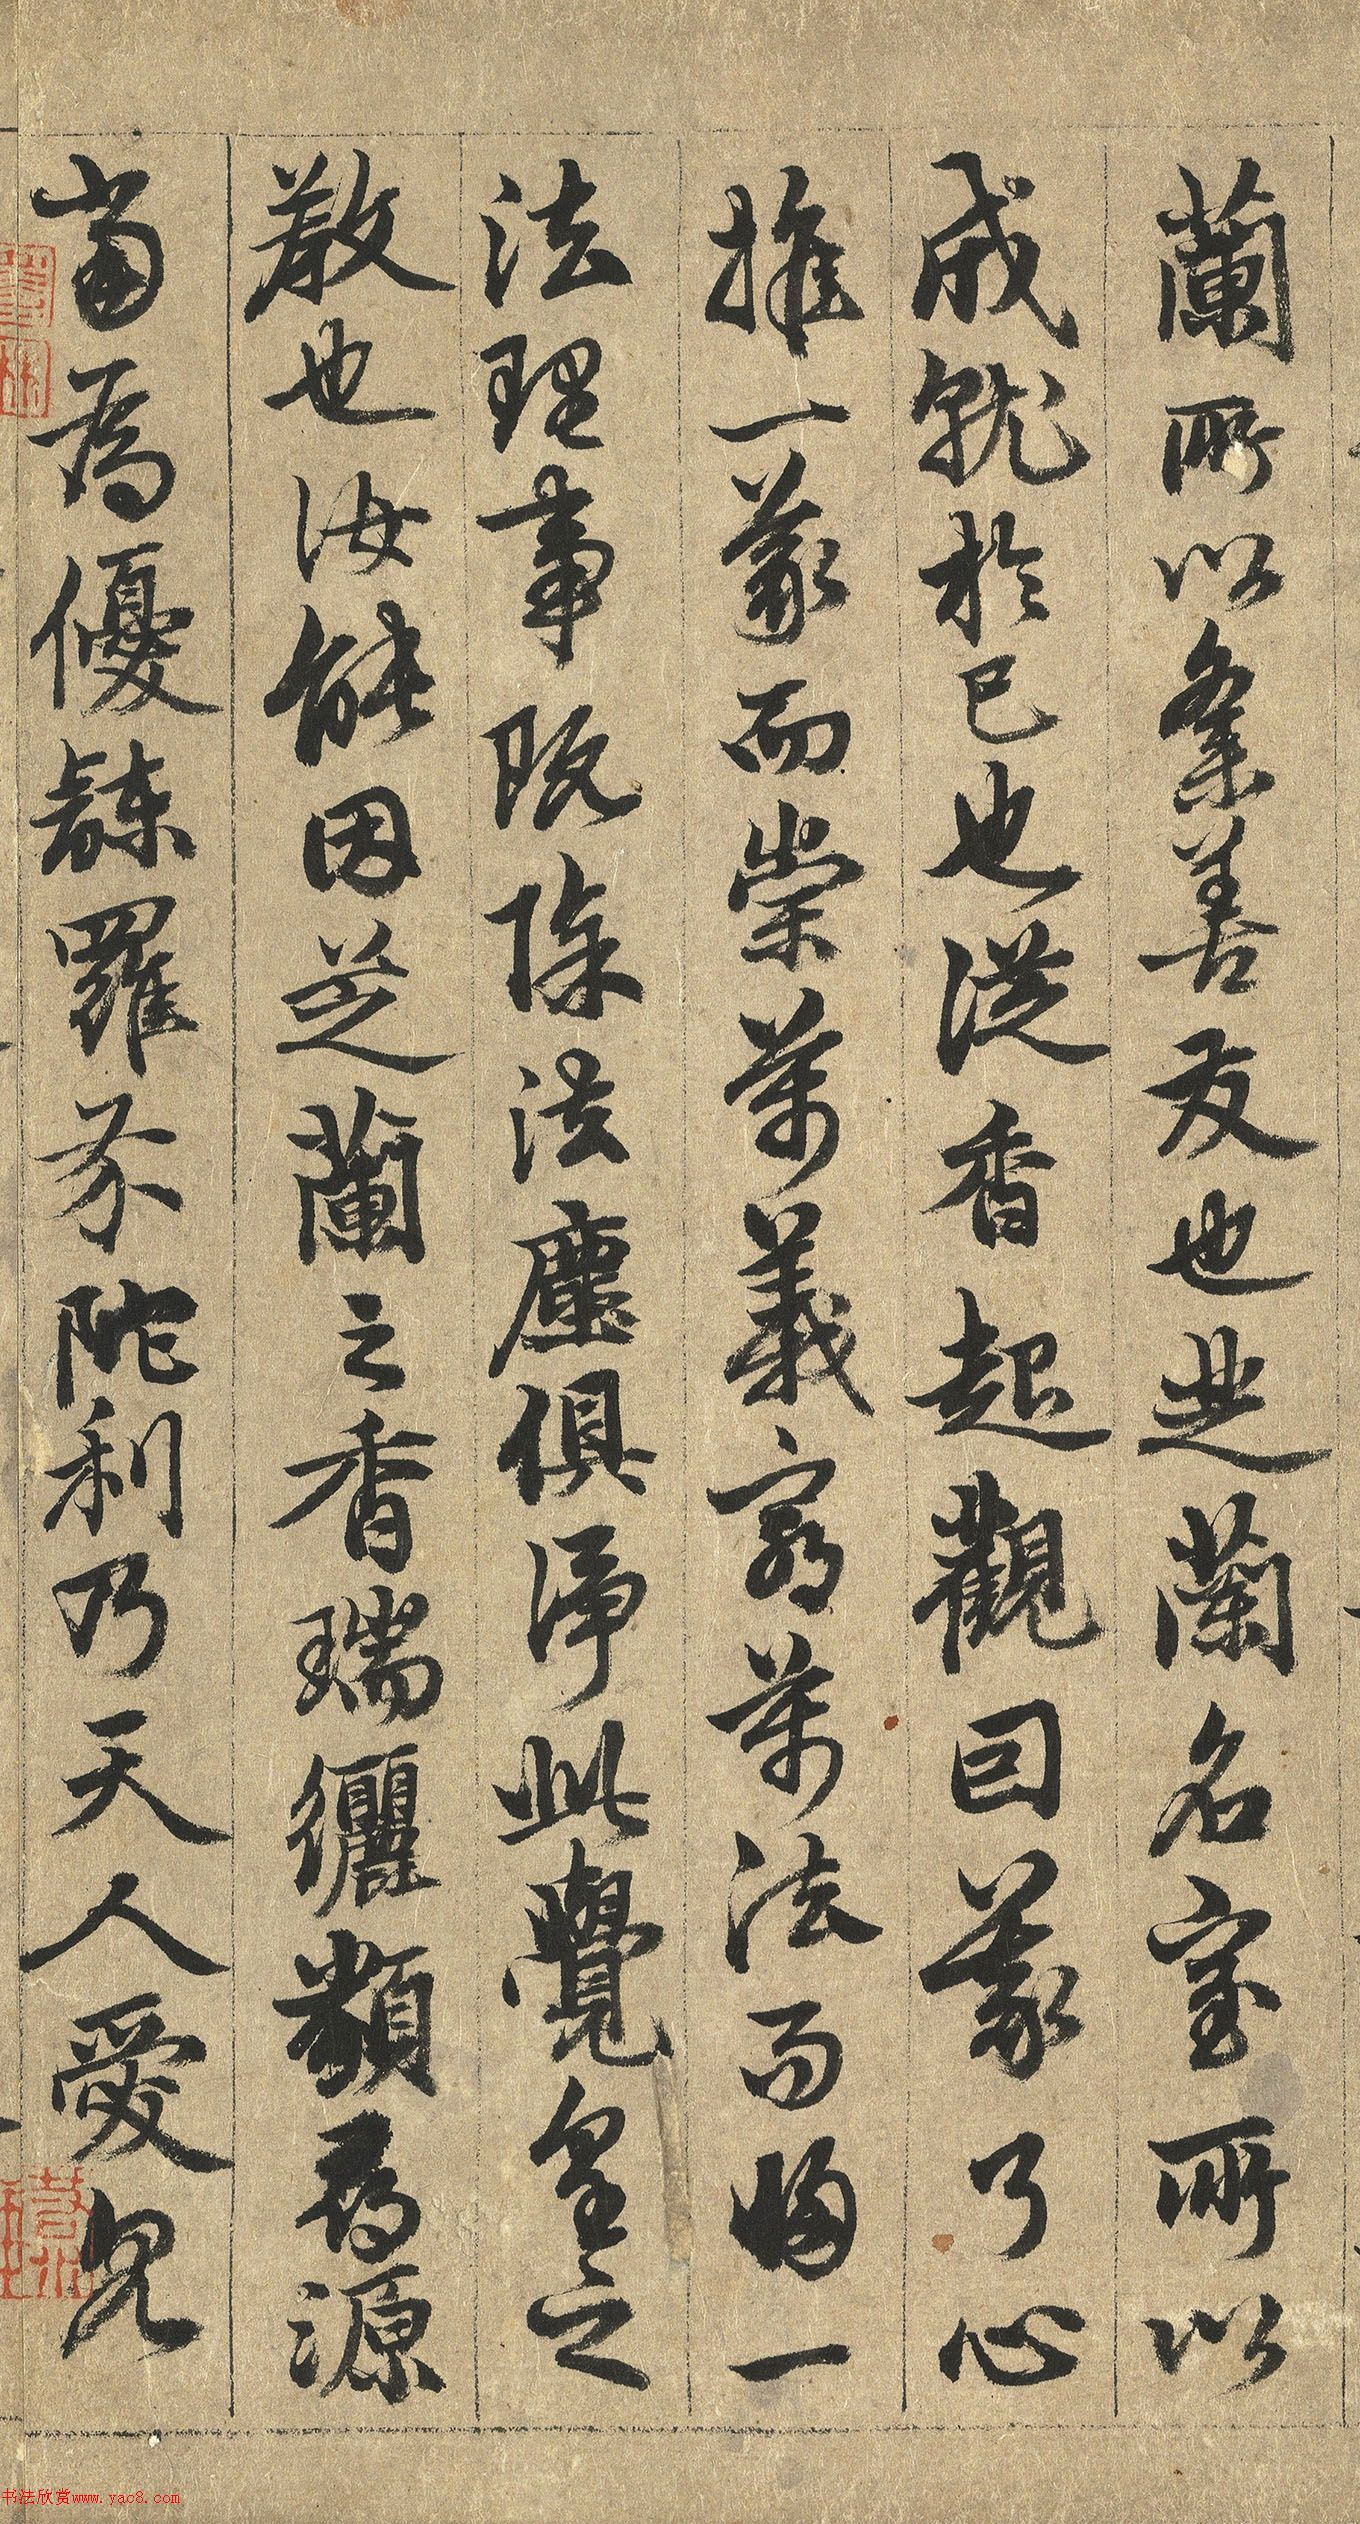 蘭所以集善友也芝蘭名室所以
成就於己也從香起觀因義了心
推一義而崇萬義窮萬法而歸一
法理事既除法塵俱淨此覺皇之
教也汝能因芝蘭之香瑞儷類尋源
當為優鉢羅芬陀利乃天人愛見
书法欣赏www.yac8.com